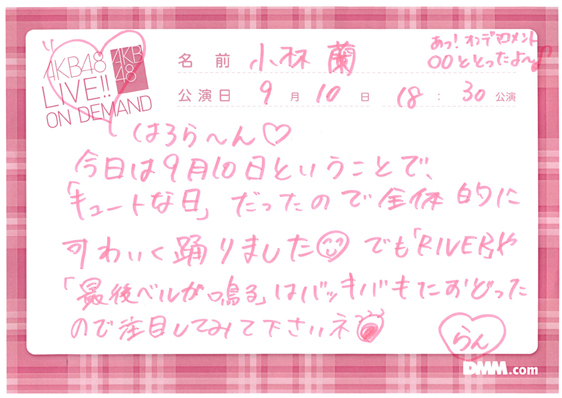 AKB48
LIVE!!
ON DEMAND
AKB
48
名前 小林 蘭
公演日 9月10日 18:30公演
あっ！オンデマコメント
○○ととったよ～♪
はろら～ん♡
今日は9月10日ということで、
「キュートな日」だったので全体的に
かわいく踊りました☺でも「RIVER」や
「最後ベルが鳴る」はバッキバキにおどった
ので注目してみて下さいネ
らん
DMM.com